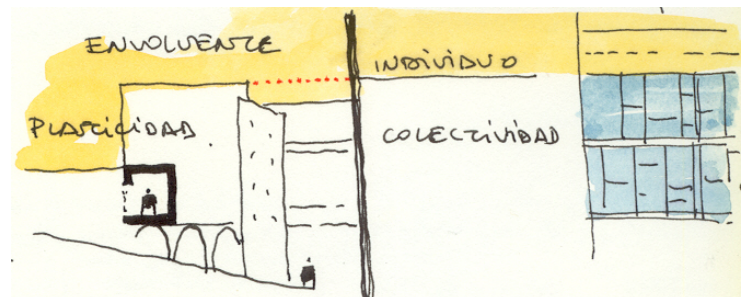 ENVOLVENTE
PLASTICIDAD.
INDIVIDUO
COLECTIVIDAD